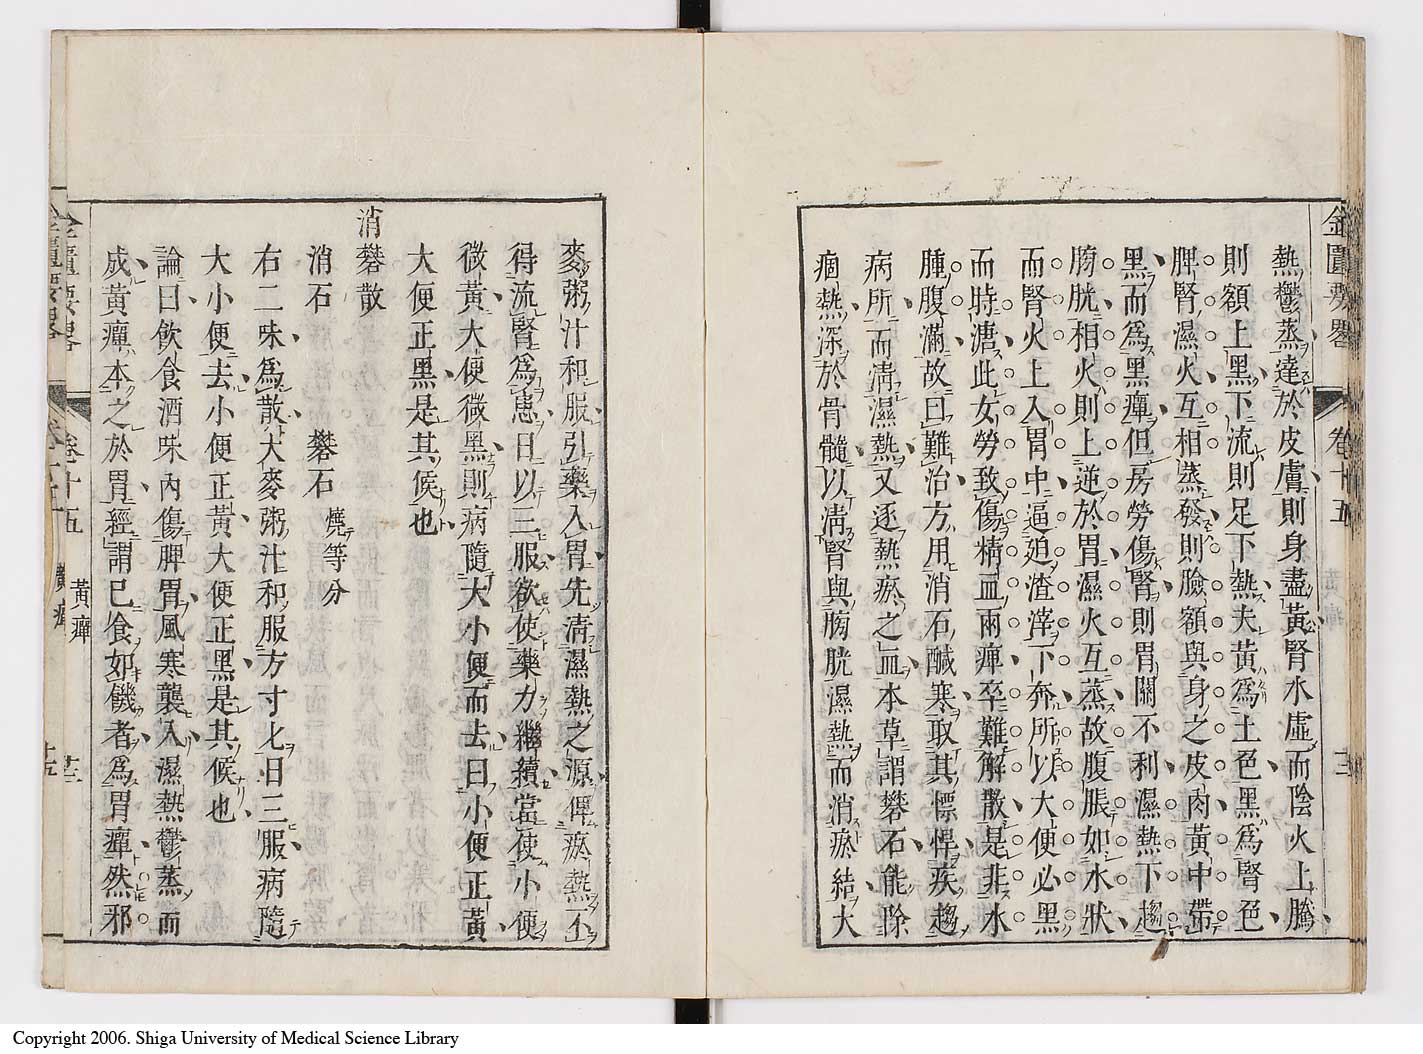 金匱要畧 卷十五 黃癉 十三
熱鬱蒸達於皮膚則身盡黃腎水虛而陰火上騰
則額上黑下流則足下熱夫黃爲土色黑爲腎色
脾腎濕火互相蒸發則臉額與身之皮肉黃中帶
黑而爲黑癉但房勞傷腎則胃關不利濕熱下趨
膀胱相火則上逆於胃濕火互蒸故腹脹如水狀
而腎火上入胃中逼迫渣滓下奔所以大便必黑
而時溏此女勞致傷精血兩癉卒難解散是非水
腫腹滿故曰難治方用消石鹹寒取其慓悍疾趨
病所而淸濕熱又逐熱瘀之血本草謂礬石能除
痼熱深於骨髓以淸腎與膀胱濕熱而消瘀結大
麥粥汁和服引藥入胃先淸濕熱之源俾瘀熱不
得流腎爲患日以三服欲使藥力繼續當使小便
微黃大便微黑則病隨大小便而去曰小便正黃
大便正黑是其候也
消礬散
消石 礬石 燒等分
右二味爲散大麥粥汁和服方寸匕日三服病隨
大小便去小便正黃大便正黑是其候也
論曰飲食酒味內傷脾胃風寒襲入濕熱鬱蒸而
成黃癉本之於胃經謂已食如饑者爲胃癉然邪
金匱要畧 卷十五 黃癉
Copyright 2006. Shiga University of Medical Science Library